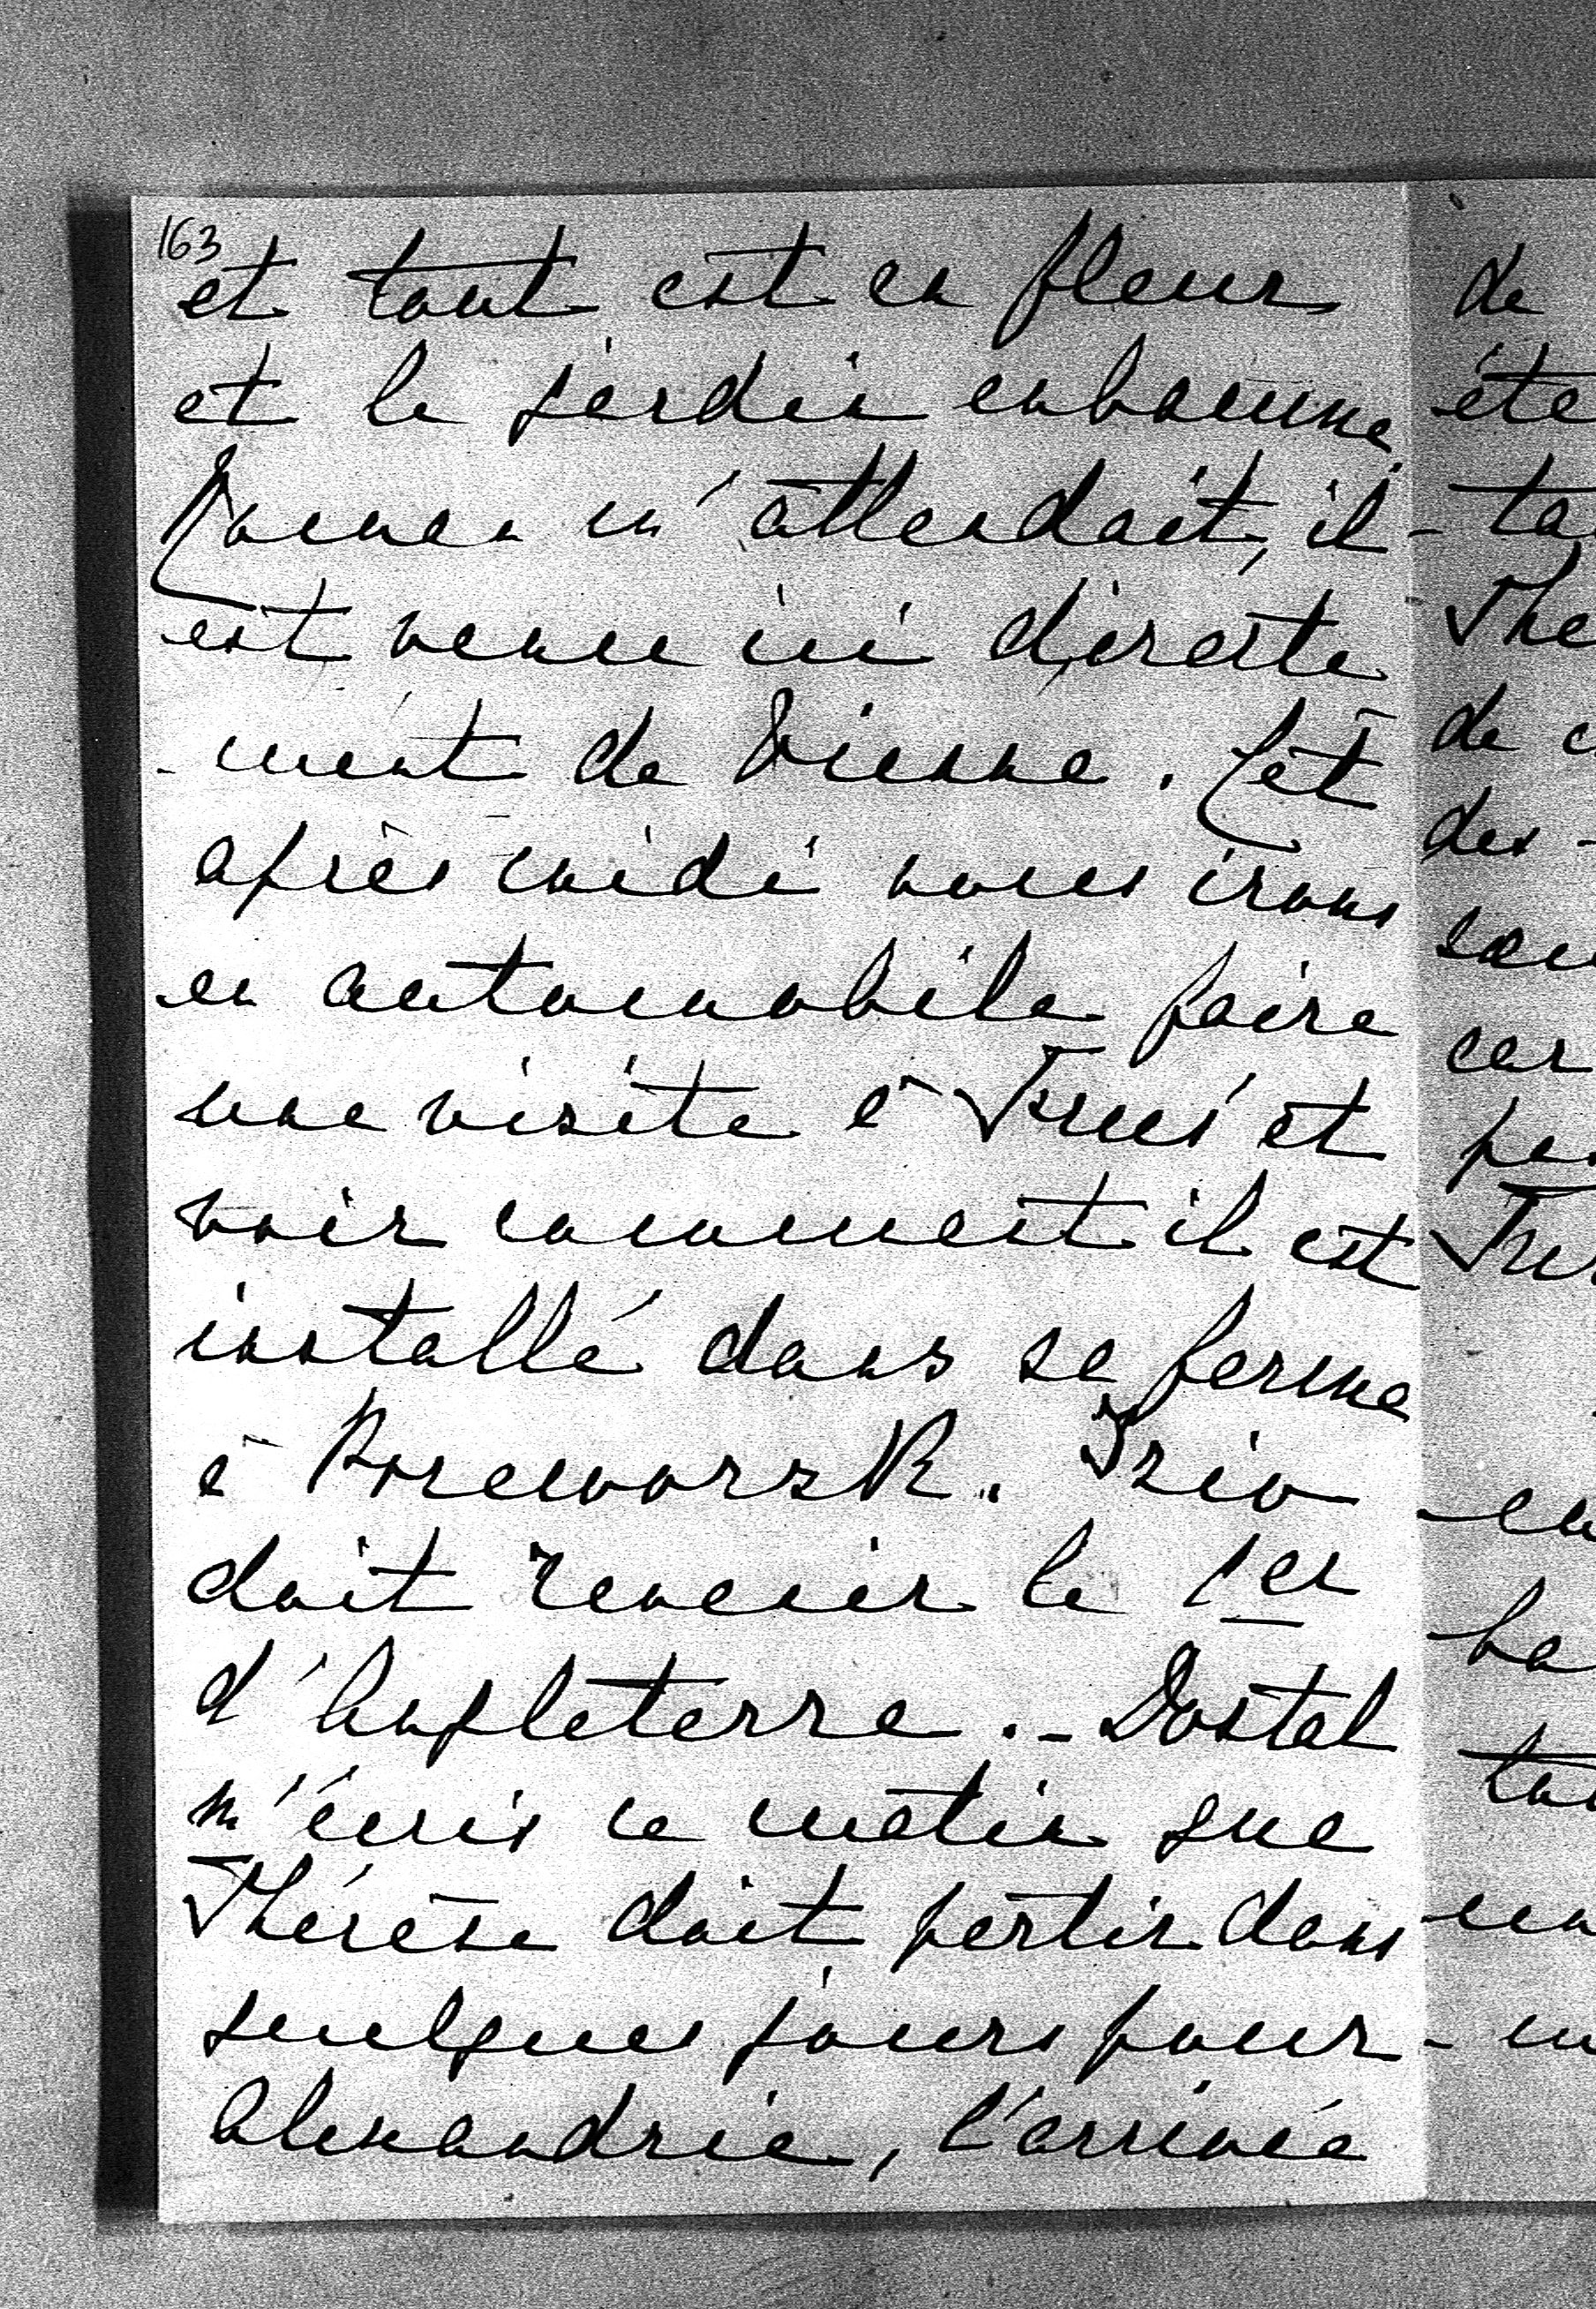 163
et tout est en fleurs
et le jardin embaume.
m'attendait, il
est venu ici directe
-ment de Vienne. Cet
après midi nous irons
en automobile faire
une visite à et
voir comment il est
installé dans sa ferme
à
doit revenir le 1er
d'Angleterre.- Dostal
m'écris ce matin que
Thérèse doit partir dans
quelques jours pour
Alexandrie, l'arrivée
de
été
ta
The
de c
des
car